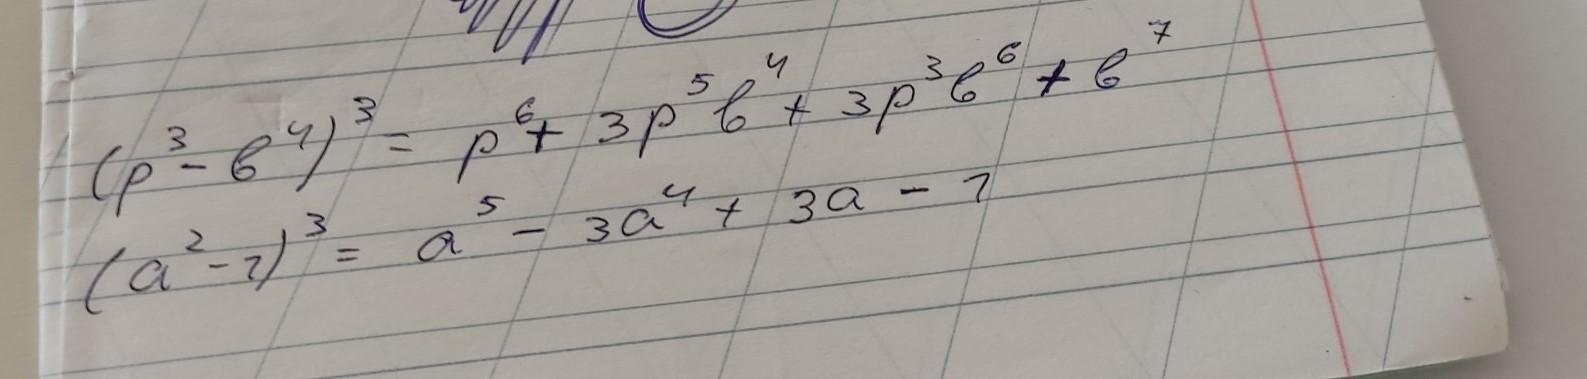 (p³ - b⁴)³ = p⁶ + 3p⁵b⁴ + 3p³b⁶ + b⁷
(a² - 1)³ = a⁵ - 3a⁴ + 3a - 1